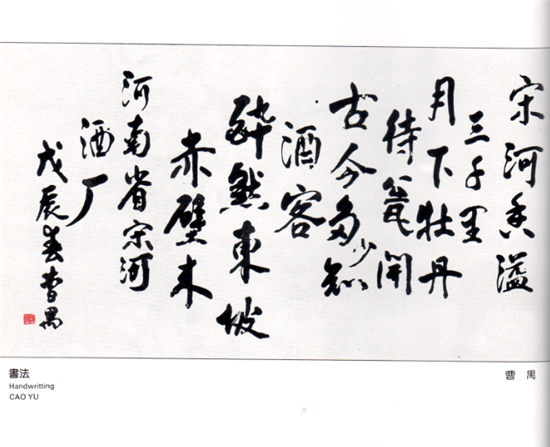 宋河香溢
三千里
月下牡丹
待瓮開
古今多少知
酒客
醉煞東坡
赤壁来
河南省宋河
酒厂
戊辰春曹禺
書法
Handwritting
CAO YU
曹禺